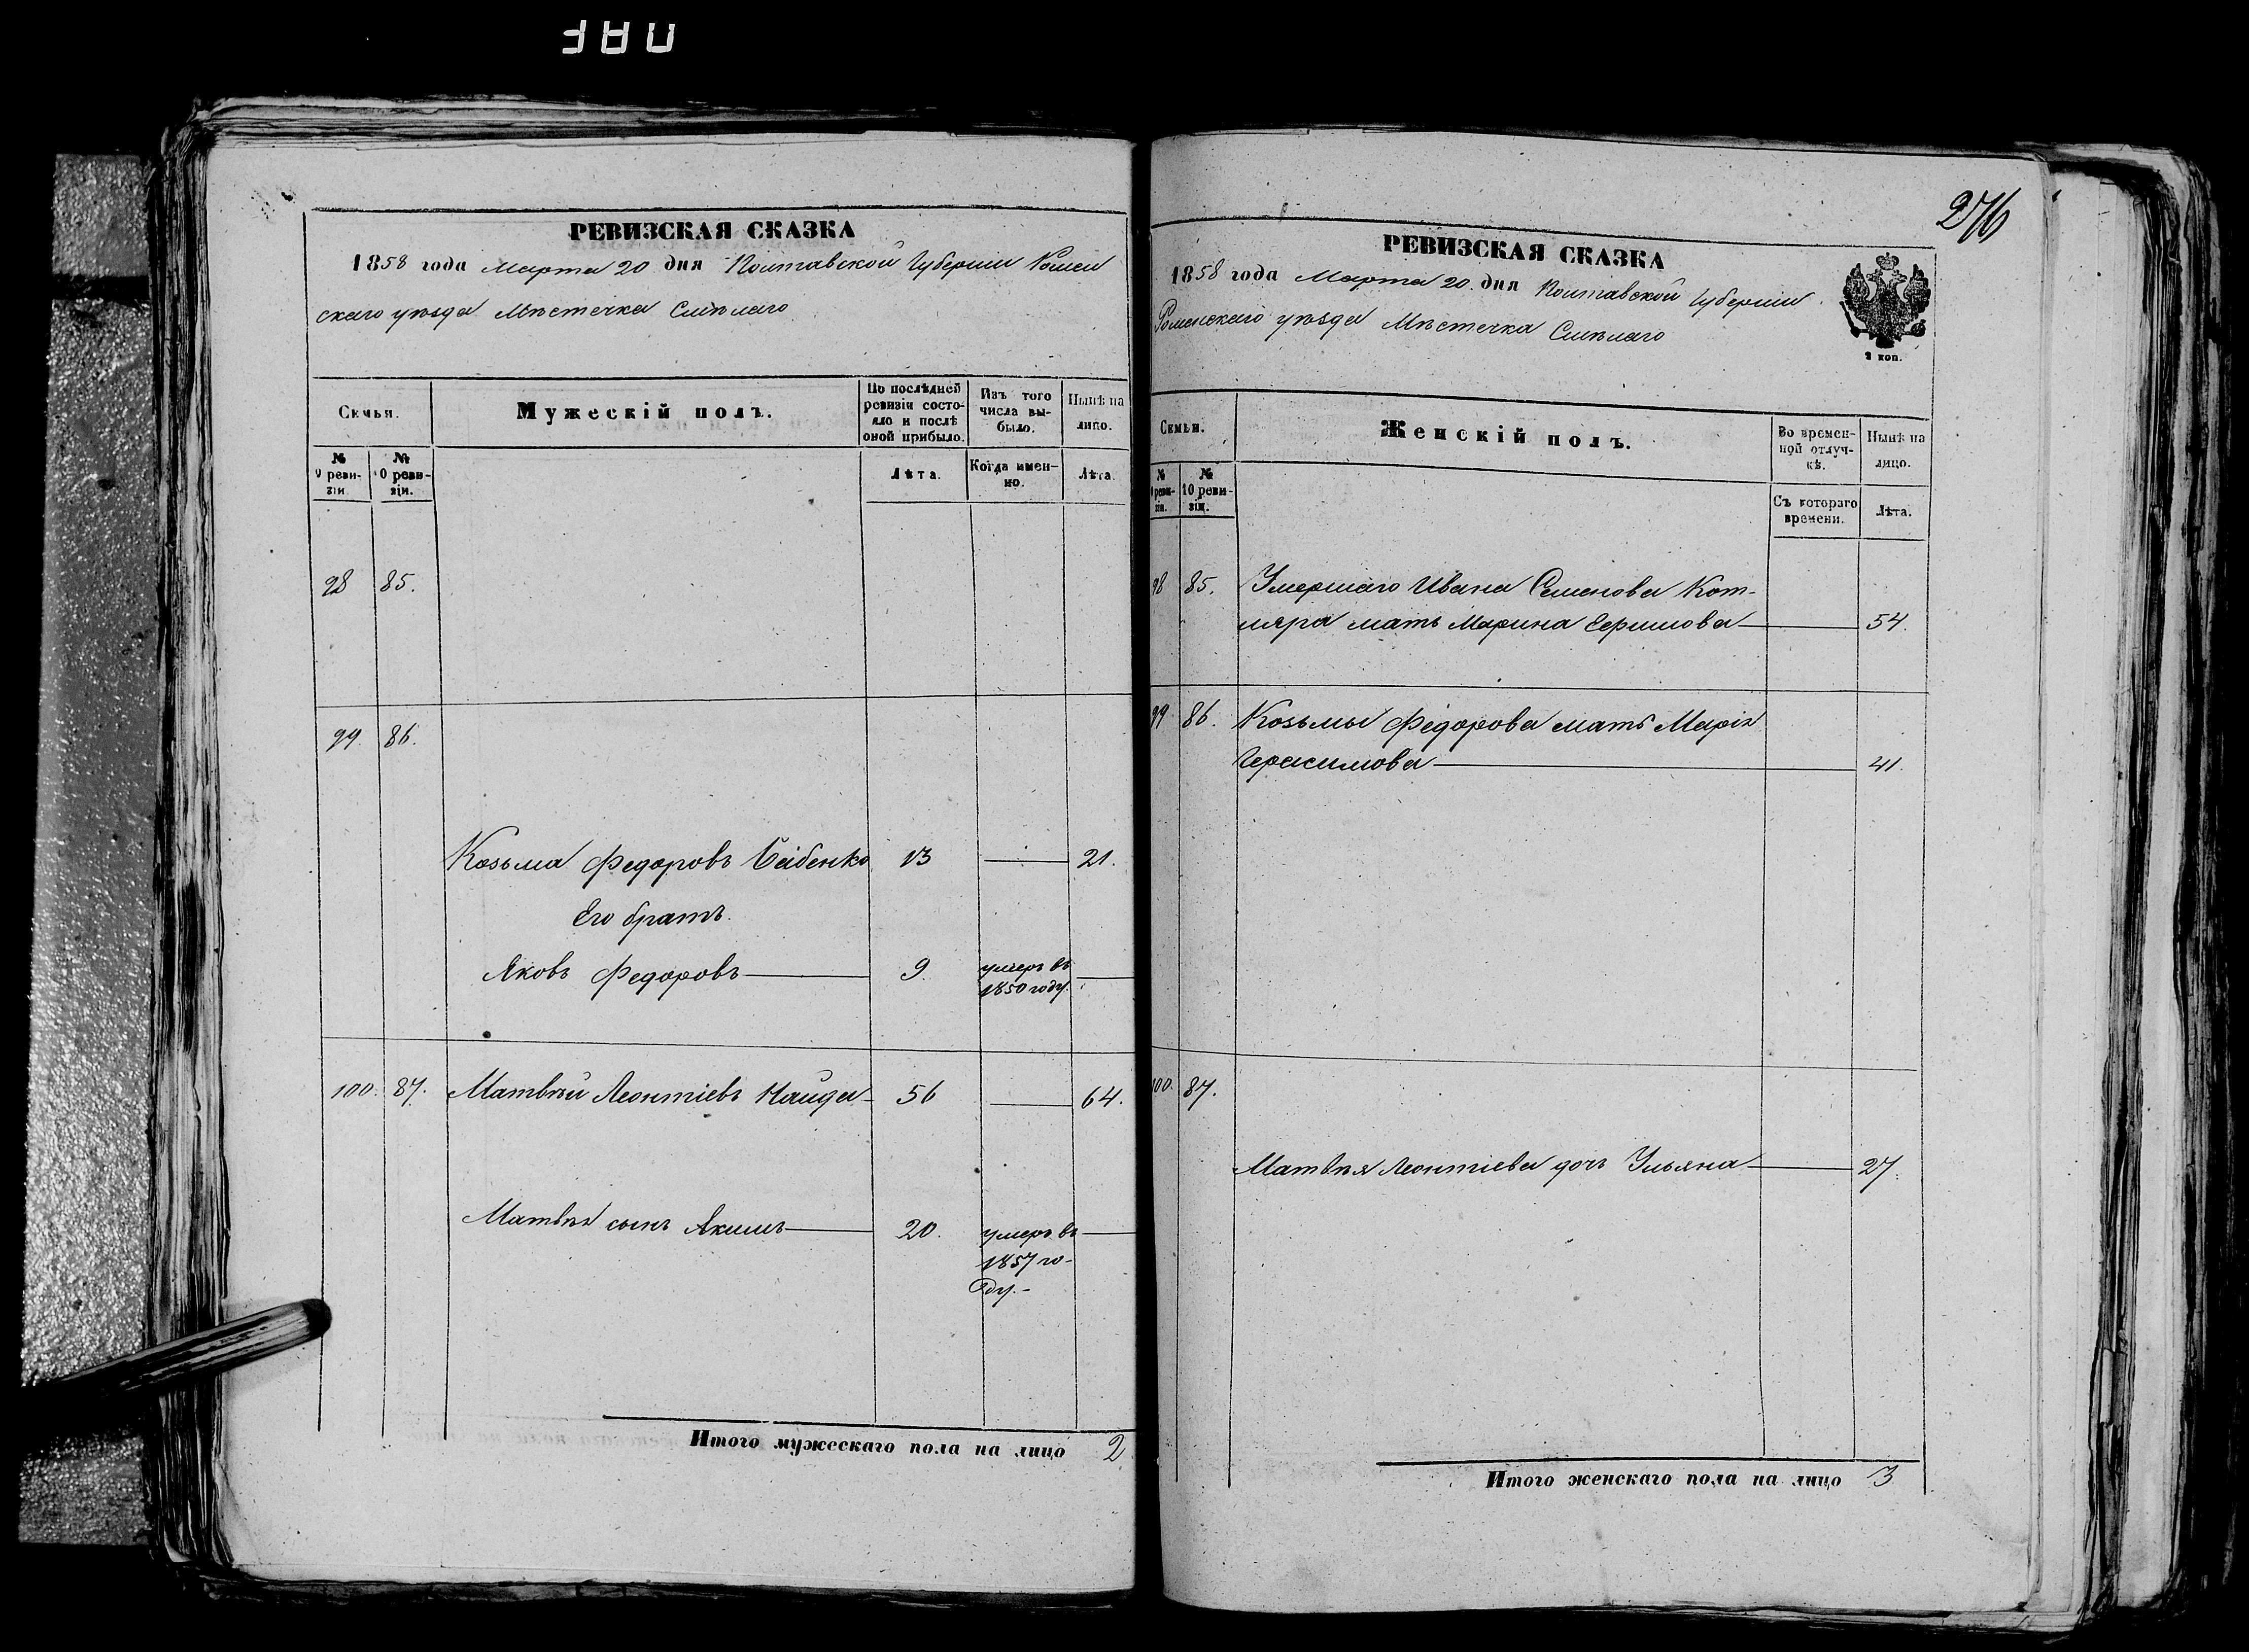 РЕВИЗСКАЯ СКАЗКА
1858 года Марта 20 дня Полтавской Губерніи Ромен
скаго уѣзда Мѣстечка Смѣлаго
Семьи.
Мужескій полъ.
По послѣдней ревизіи состояло и послѣ оной прибыло.
Изъ того числа выбыло.
Нынѣ на лицо.
№ 9 ревизіи.
№ 10 ревизіи.
Лѣта.
Когда именно.
Лѣта.
98 85.
99. 86.
Козьма Федоровъ Бабенко 13 — 21.
Его братъ.
Яковъ Федоровъ — 9. умеръ въ —
1850 году.
100. 87. Матвѣй Леонтіевъ Найда — 56 — 64.
Матвѣя сынъ Акимъ — 20. умеръ въ —
1857 го-
ду. -
Итого мужескаго пола на лицо 2
276
РЕВИЗСКАЯ СКАЗКА
1858 года Марта 20. дня Полтавской Губерніи
Роменскаго уѣзда Мѣстечка Смѣлаго
2 коп.
Семьи.
Женскій полъ.
Во временной отлучкѣ.
Нынѣ на лицо.
№ 9 ревизіи.
№ 10 ревизіи.
Съ котораго времени.
Лѣта.
98 85. Умершаго Ивана Семенова Кот-
ляра мать Марина Ефимова — 54.
99 86. Козьмы Федорова мать Марія
Герасимова — 41.
100. 87.
Матвѣя Леонтіева дочь Ульяна — 27.
Итого женскаго пола на лицо 3